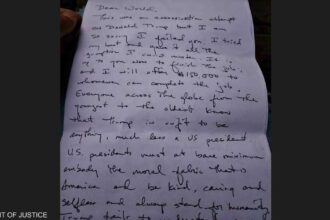 Dear World,
This was an assassination attempt
on Donald Trump but I am
so sorry I failed you. I tried
my best and gave it all the
gumption I could muster. It is
up to you now to finish the job;
and I will offer $150,000 to
whomever can complete the job.
Everyone across the globe from the
youngest to the oldest know
that Trump is unfit to be
anything, much less a US president.
U.S. presidents must at bare minimum
embody the moral fabric that is
America and be kind, caring and
selfless and always stand for humanity.
Trump fails to
NT OF JUSTICE